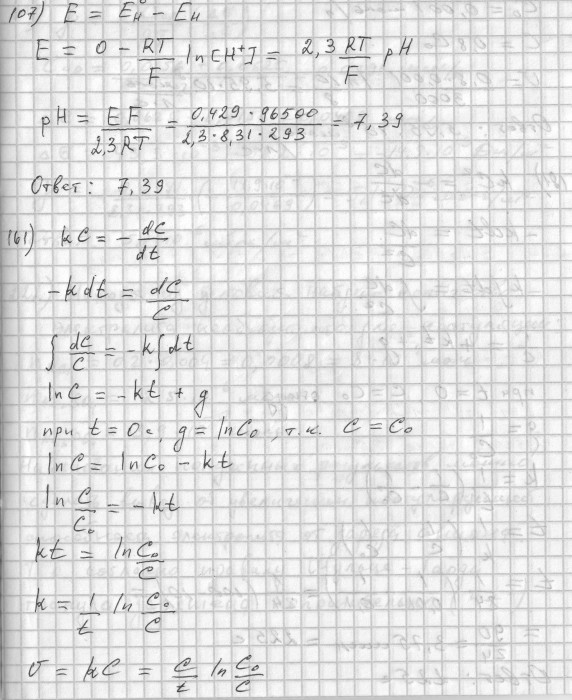 107) E = E°н − Eн
E = 0 − RT/F ln[H⁺] = 2,3 RT/F pH
pH = EF/2,3RT = 0,429 · 96500/2,3 · 8,31 · 293 = 7,39
Ответ: 7,39
161) kC = − dC/dt
−kdt = dC/C
∫ dC/C = −k∫dt
lnC = −kt + g
при t = 0 с, g = lnC₀, т.к. C = C₀
lnC = lnC₀ − kt
ln C/C₀ = −kt
kt = ln C₀/C
k = 1/t ln C₀/C
υ = kC = C/t ln C₀/C